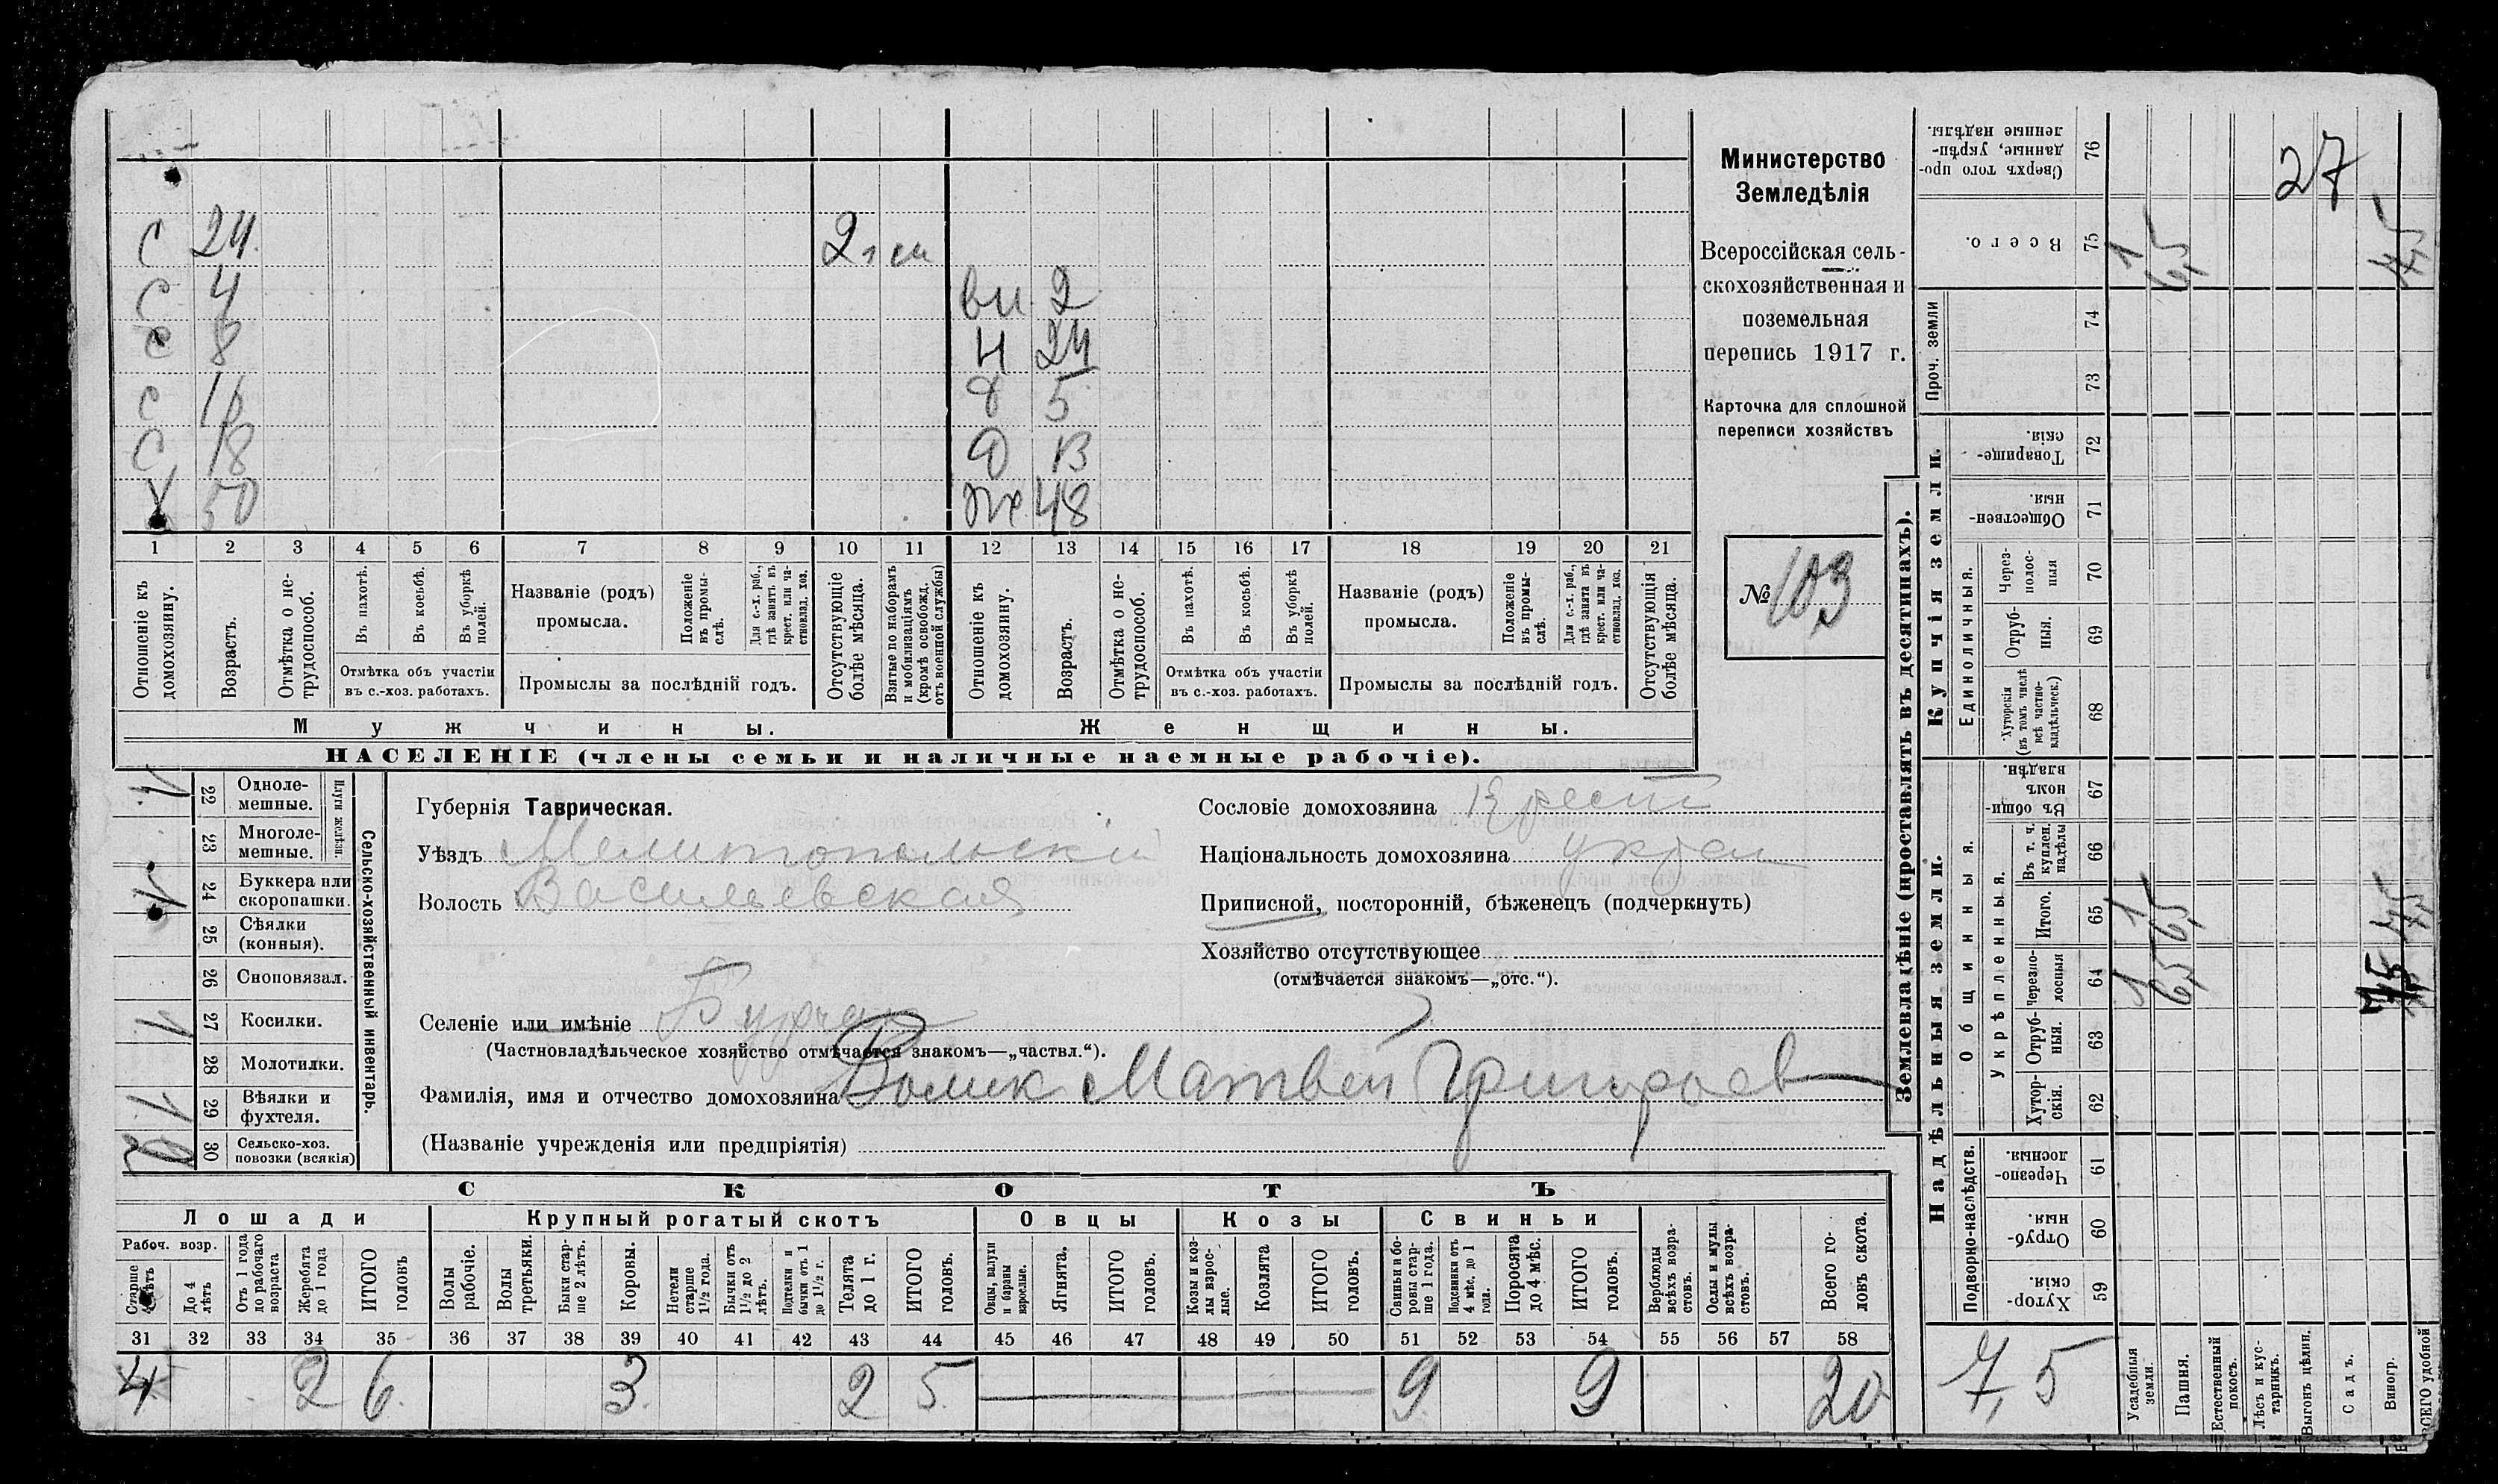 С 24 2 я ст
С 4 вн 2
С 8 Н 24
С 16 Д 5
С 18 Д 13
Х 50 Ж 48
1 2 3 4 5 6 7 8 9 10 11 12 13 14 15 16 17 18 19 20 21
Отношеніе къ домохозяину.
Возрастъ.
Отмѣтка о не-трудоспособ.
Въ пахотѣ.
Въ косьбѣ.
Въ уборкѣ полей.
Отмѣтка объ участіи
въ с.-хоз. работахъ.
Названіе (родъ)
промысла.
Положеніе въ промы-слѣ.
Для с.-х. раб., гдѣ занятъ въ крест. или ча-стновлад. хоз.
Промыслы за послѣдній годъ.
Отсутствующіе болѣе мѣсяца.
Взятые по наборамъ и мобилизаціямъ (кромѣ освобожд. отъ военной службы)
Отношеніе къ домохозяину.
Возрастъ.
Отмѣтка о не-трудоспособ.
Въ пахотѣ.
Въ косьбѣ.
Въ уборкѣ полей.
Отмѣтка объ участіи
въ с.-хоз. работахъ.
Названіе (родъ)
промысла.
Положеніе въ промы-слѣ.
Для с.-х. раб., гдѣ занята въ крест. или ча-стновлад. хоз.
Промыслы за послѣдній годъ.
Отсутствующія болѣе мѣсяца.
Мужчины. Женщины.
НАСЕЛЕНІЕ (члены семьи и наличные наемные рабочіе).
Министерство
Земледѣлія
Всероссійская сель-
скохозяйственная и
поземельная
перепись 1917 г.
Карточка для сплошной
переписи хозяйствъ
№ 103
Сельско-хозяйственный инвентарь.
Плуги желѣзн.
1 22 Одноле-мешные.
23 Многоле-мешные.
1 24 Буккера или скоропашки.
25 Сѣялки (конныя).
26 Сноповязал.
1 27 Косилки.
28 Молотилки.
1 29 Вѣялки и фухтеля.
30 Сельско-хоз. повозки (всякія)
Губернія Таврическая.
Уѣздъ Мелитопольскій
Волость Васильевская
Селеніе или имѣніе Бурчак
(Частновладѣльческое хозяйство отмѣчается знакомъ—„частвл.“).
Фамилія, имя и отчество домохозяина Волик Матвей Григорьев
(Названіе учрежденія или предпріятія)
Сословіе домохозяина Крест
Національность домохозяина Укран
Приписной, посторонній, бѣженецъ (подчеркнуть)
Хозяйство отсутствующее
(отмѣчается знакомъ—„отс.“).
СКОТЪ
Лошади Крупный рогатый скотъ Овцы Козы Свиньи
Рабоч. возр.
Старше 4 лѣтъ
До 4 лѣтъ
Отъ 1 года до рабочаго возраста
Жеребята до 1 года
ИТОГО головъ
Волы рабочіе.
Волы третьяки.
Быки стар-ше 2 лѣтъ.
Коровы.
Нетели старше 1½ года.
Бычки отъ 1½ до 2 лѣтъ.
Подтелки и бычки отъ 1 до 1½ г.
Телята до 1 г.
ИТОГО головъ.
Овцы, валухи и бараны взрослые.
Ягнята.
ИТОГО головъ.
Козы и коз-лы взрос-лые.
Козлята
ИТОГО головъ.
Свиньи и бо-ровы стар-ше 1 года.
Подсвинки отъ 4 мѣс. до 1 года.
Поросята до 4 мѣс.
ИТОГО головъ.
Верблюды всѣхъ возра-стовъ.
Ослы и мулы всѣхъ возра-стовъ.
Всего го-ловъ скота.
31 32 33 34 35 36 37 38 39 40 41 42 43 44 45 46 47 48 49 50 51 52 53 54 55 56 57 58
4 2 6 3 2 5 9 9 20
Землевладѣніе (проставлять въ десятинахъ).
Купчія земли.
Надѣльныя земли.
Сверхъ того про-данные, укрѣп-ленные надѣлы. 76 27
Всего. 75 1 6,5 7,5
Проч. земли
74
73
Товарище-скія. 72
Обществен-ныя. 71
Единоличныя.
Через-полос-ныя 70
Отруб-ныя. 69
Хуторскія (въ томъ числѣ всѣ частно-владѣльческ.) 68
Общинныя.
Въ общи-номъ владѣн. 67
Укрѣпленныя.
Въ т. ч. куплен. надѣлы 66
Итого. 65 1 6,5 7,5
Черезпо-лосныя 64 1 6,5 7,5
Отруб-ныя. 63
Хутор-скія. 62
Подворно-наслѣдств.
Черезпо-лосныя. 61
Отруб-ныя 60
Хутор-скія. 59
7,5
Усадебныя земли.
Пашня.
Естественный покосъ.
Лѣсъ и кус-тарникъ.
Выгонъ цѣлин.
Садъ.
Виногр.
ВСЕГО удобной